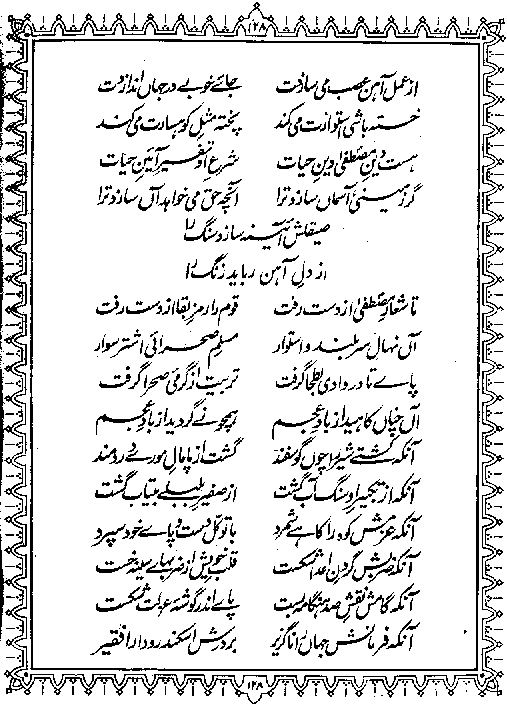 ۱۲۸
از عمل آہن عصب می سازدت جائے خوبے در جہاں اندازدت
خستہ باشی استوارت می کند پختہ مثل کوہسارت می کند
ہست دین مصطفیٰ دین حیات شرع او تفسیر آئین حیات
گر زمینی آسماں سازد ترا آنچہ حق می خواہد آں سازد ترا
صیقلش آئینہ سازد سنگ را
از دل آہن رباید زنگ را
تا شعار مصطفیٰ از دست رفت قوم را رمز بقا از دست رفت
آں نہال سربلند و استوار مسلم صحرائی اشتر سوار
پاے تا در وادی بطحا گرفت تربیت از گرمیٔ صحرا گرفت
آں چناں کاہید از باد عجم ہمچو نے گردید از باد عجم
آنکہ کشتے شیر را چوں گوسفند گشت از پامال مورے دردمند
آنکہ از تکبیر او سنگ آب گشت از صفیر بلبلے بیتاب گشت
آنکہ عزمش کوہ را کاہے شمرد با توکل دست و پاے خود سپرد
آنکہ ضربش گردن اعدا شکست قلب خویش از ضربہاے سینہ خست
آنکہ گامش نقش صد ہنگامہ بست پاے اندر گوشۂ عزلت شکست
آنکہ فرمانش جہاں را ناگزیر بر درش اسکندر و دارا فقیر
۱۲۸